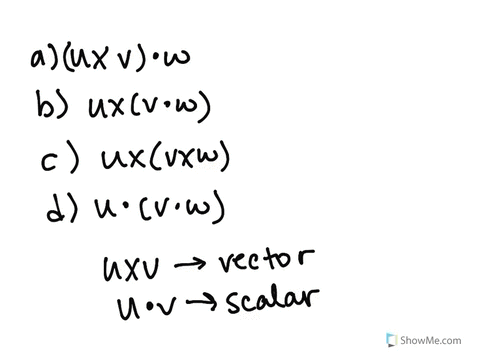 a) (u x v) • w
b) u x (v • w)
c) u x (v x w)
d) u • (v • w)
u x v → vector
u • v → scalar
ShowMe.com